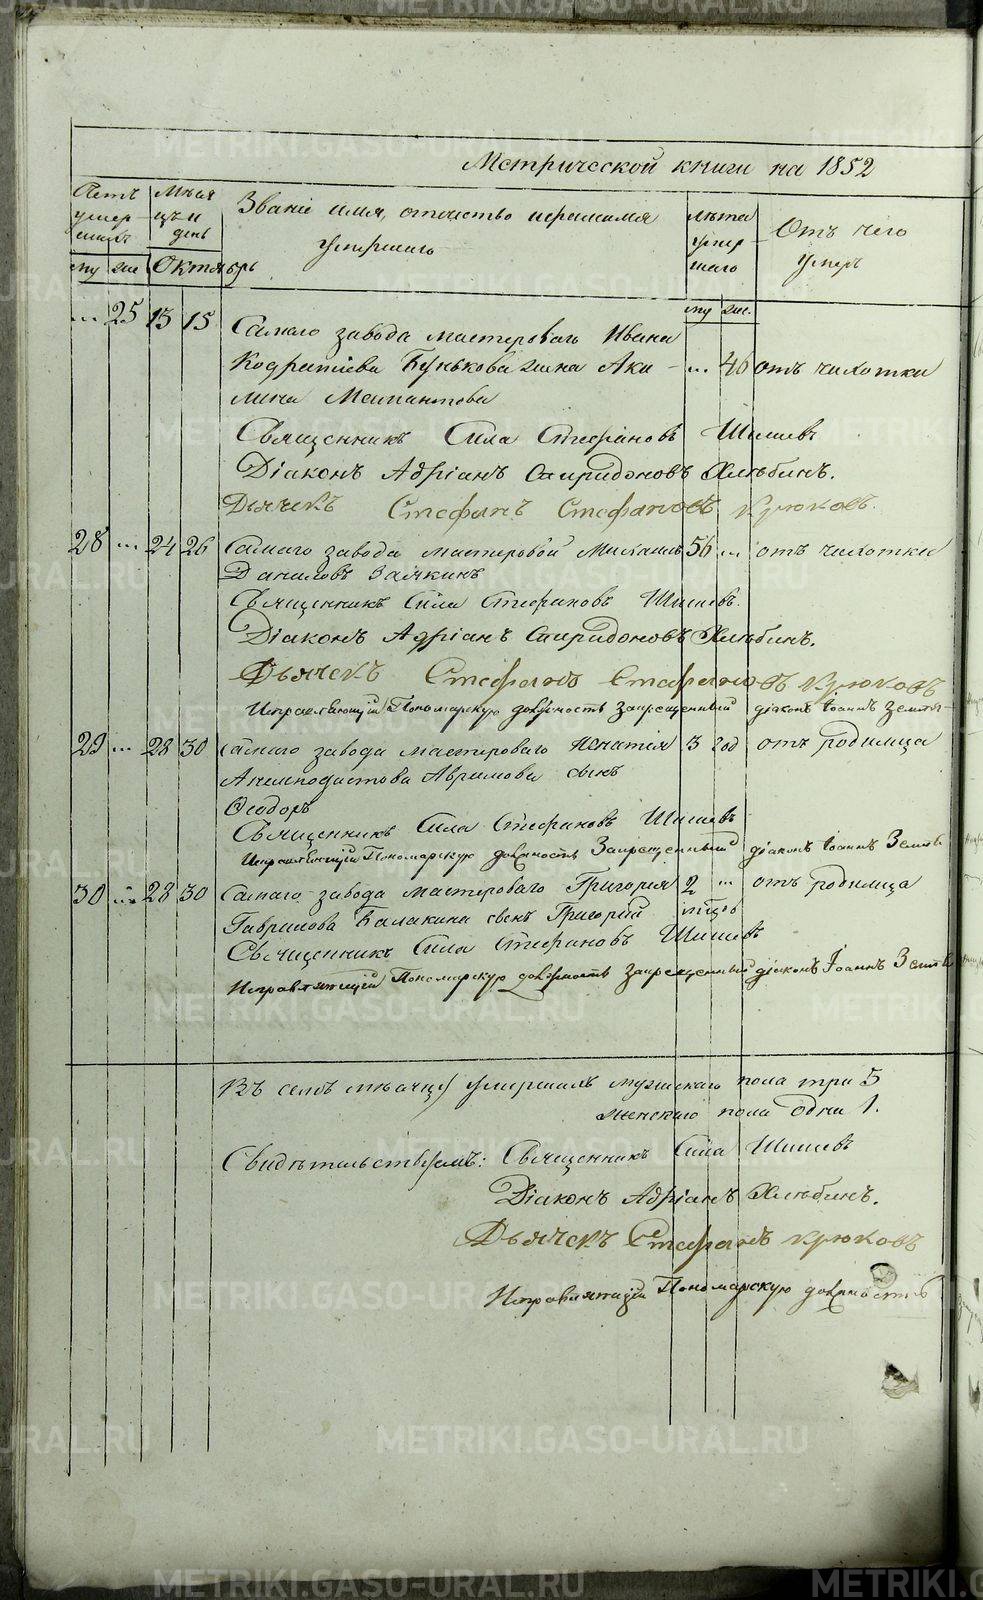 Метрической книги на 1852
Счетъ умершихъ
Мѣсяцъ и день
Званіе имя, отчество и фамилія умершаго
лѣта умершаго
Отъ чего умеръ
му же Октябрь
му же.
... 25 13 15 Самаго завода мастероваго Ивана
Кодратіева Бунькова жена Аки- ... 46 отъ чихотки
лина
Священникъ Сила Стефановъ Шишевъ
Діаконъ Адріанъ Спиридоновъ Хлѣбинъ.
Дьячекъ Стефанъ Стефановъ Крюковъ.
28 ... 24 26 Самаго завода мастеровой Михаилъ 56 ... отъ чихотки
Даниловъ Заякинъ
Священникъ Сила Стефановъ Шишевъ.
Діаконъ Адріанъ Спиридоновъ Хлѣбинъ.
Дьячекъ Стефанъ Стефановъ Крюковъ
Исправляющій Пономарскую должность Запрещенный діаконъ Іоаннъ
29 ... 28 30 Самаго завода мастероваго Игнатія 3 год отъ родимца
Анемподистова Аврамова сынъ
Ѳеодоръ
Священникъ Сила Стефановъ Шишевъ
Исправляющій Пономарскую должность Запрещенный діаконъ Іоаннъ
30 ... 28 30 Самаго завода мастероваго Григорія 2 ... отъ родимца
Гаврилова Балакина сынъ Григорій
Священникъ Сила Стефановъ Шишевъ
Исправляющій Пономарскую должность Запрещенный діаконъ Іоаннъ
Въ семъ мѣсяцѣ умершихъ мужескаго пола три 3
женскаго пола одна 1.
Свидѣтельствуемъ: Священникъ Сила Шишевъ
Діаконъ Адріанъ Хлѣбинъ.
Дьячекъ Стефанъ Крюковъ
Исправляющій Пономарскую должность
METRIKI.GASO-URAL.RU